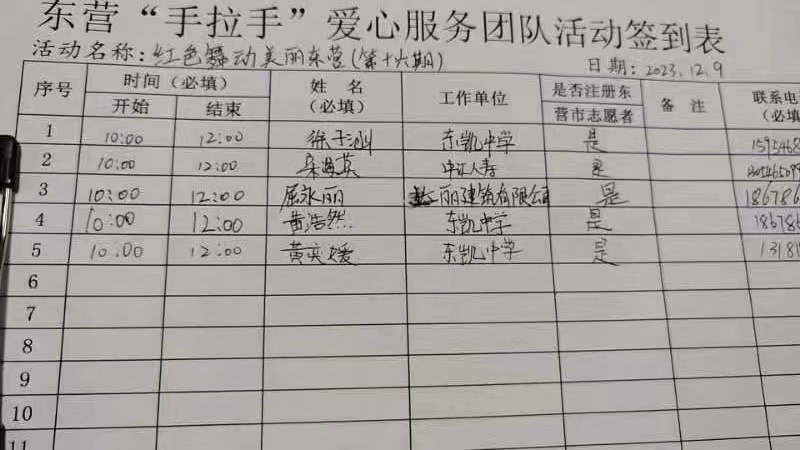 东营“手拉手”爱心服务团队活动签到表
活动名称：红色舞动美丽东营（第十六期） 日期：2023.12.9
序号 时间（必填） 姓名（必填） 工作单位 是否注册东营市志愿者 备注 联系电
开始 结束 （必填
1 10:00 12:00 徐于 东凯中学 是 1595468
2 10:00 12:00 英 人寿 是
3 10:00 12:00 屈永丽 丽建筑有限公司 是 186786
4 10:00 12:00 黄浩然 东凯中学 是 18678
5 10:00 12:00 黄奕媛 东凯中学 是 1318
6
7
8
9
10
11